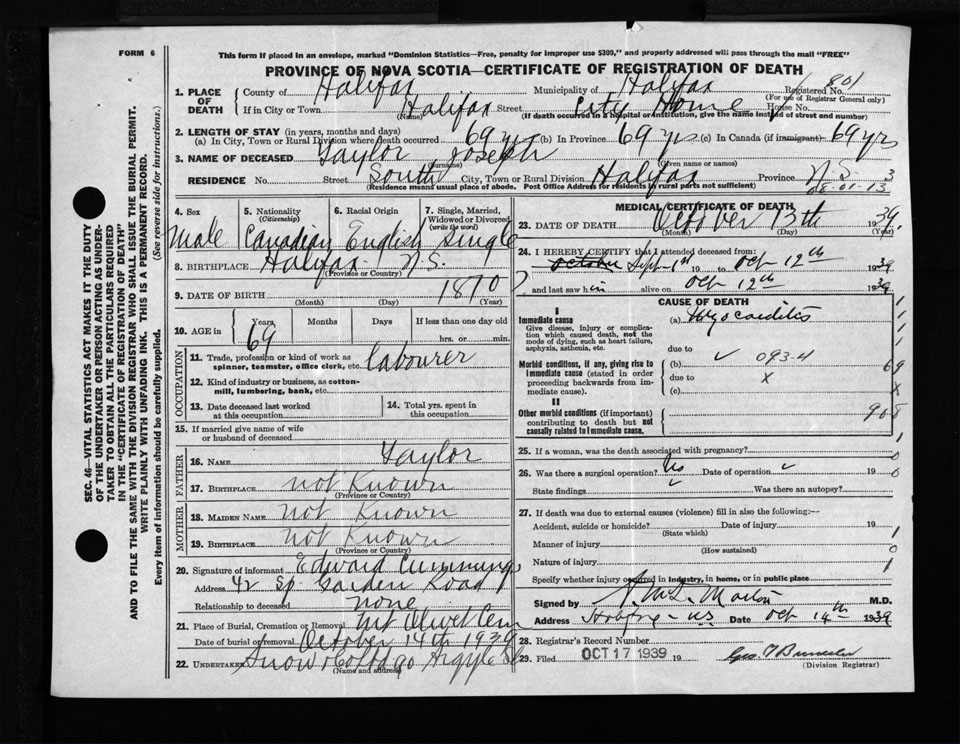 FORM 6
This form if placed in an envelope, marked "Dominion Statistics—Free, penalty for improper use $300," and properly addressed will pass through the mail "FREE"
PROVINCE OF NOVA SCOTIA—CERTIFICATE OF REGISTRATION OF DEATH
1. PLACE OF DEATH County of Halifax Municipality of Halifax Registered No. 801
(For use of Registrar General only)
If in City or Town Halifax Street City Home House No.
(Name) (If death occurred in a hospital or institution, give the name instead of street and number)
2. LENGTH OF STAY (in years, months and days)
(a) In City, Town or Rural Division where death occurred 69 yrs (b) In Province 69 yrs (c) In Canada (if immigrant) 69 yrs
3. NAME OF DECEASED Taylor Joseph
(Surname) (Given name or names)
RESIDENCE No. Street South City, Town or Rural Division Halifax Province N.S. 3
(Residence means usual place of abode. Post Office Address for residents in rural parts not sufficient) 08-01-13
4. Sex 5. Nationality (Citizenship) 6. Racial Origin 7. Single, Married, Widowed or Divorced (write the word)
Male Canadian English Single
8. BIRTHPLACE Halifax N.S.
(Province or Country)
9. DATE OF BIRTH 1870
(Month) (Day) (Year)
10. AGE in Years Months Days If less than one day old
69 hrs. or min.
OCCUPATION
11. Trade, profession or kind of work as spinner, teamster, office clerk, etc. labourer
12. Kind of industry or business, as cotton-mill, lumbering, bank, etc.
13. Date deceased last worked at this occupation
14. Total yrs. spent in this occupation
15. If married give name of wife or husband of deceased
FATHER
16. NAME Taylor
17. BIRTHPLACE not Known
(Province or Country)
MOTHER
18. MAIDEN NAME not Known
19. BIRTHPLACE not Known
(Province or Country)
20. Signature of informant Edward Cummings
Address 42 Sp. Garden Road
Relationship to deceased none
21. Place of Burial, Cremation or Removal Mt Olivet Cem
Date of burial or removal October 14th 1939
22. Undertaker Snow & Co 90 Argyle St
(Name and address)
MEDICAL CERTIFICATE OF DEATH
23. DATE OF DEATH October 13th 1939
(Month) (Day) (Year)
24. I HEREBY CERTIFY that I attended deceased from:
October Sept 19 to Oct 12th 1939
and last saw him alive on Oct 12th 1939
CAUSE OF DEATH
I
Immediate cause
Give disease, injury or complication which caused death, not the mode of dying, such as heart failure, asphyxia, asthenia, etc.
(a) Myocarditis
due to
Morbid conditions, if any, giving rise to immediate cause (stated in order proceeding backwards from immediate cause).
(b) ✓ 093-4
due to x
(c)
II
Other morbid conditions (if important) contributing to death but not causally related to immediate cause.
908
25. If a woman, was the death associated with pregnancy?
26. Was there a surgical operation? No Date of operation 19
State findings Was there an autopsy?
27. If death was due to external causes (violence) fill in also the following:—
Accident, suicide or homicide? Date of injury 19
(State which)
Manner of injury
(How sustained)
Nature of injury
Specify whether injury occurred in industry, in home, or in public place
Signed by M.D.
Address Halifax - N.S. Date Oct 14th 1939
28. Registrar's Record Number
29. Filed OCT 17 1939 19
(Division Registrar)
SEC. 46—VITAL STATISTICS ACT MAKES IT THE DUTY
OF THE UNDERTAKER OR PERSON ACTING AS UNDER-
TAKER TO OBTAIN ALL THE PARTICULARS REQUIRED
IN THE "CERTIFICATE OF REGISTRATION OF DEATH"
AND TO FILE THE SAME WITH THE DIVISION REGISTRAR WHO SHALL ISSUE THE BURIAL PERMIT.
WRITE PLAINLY WITH UNFADING INK. THIS IS A PERMANENT RECORD.
Every item of information should be carefully supplied. (See reverse side for instructions.)